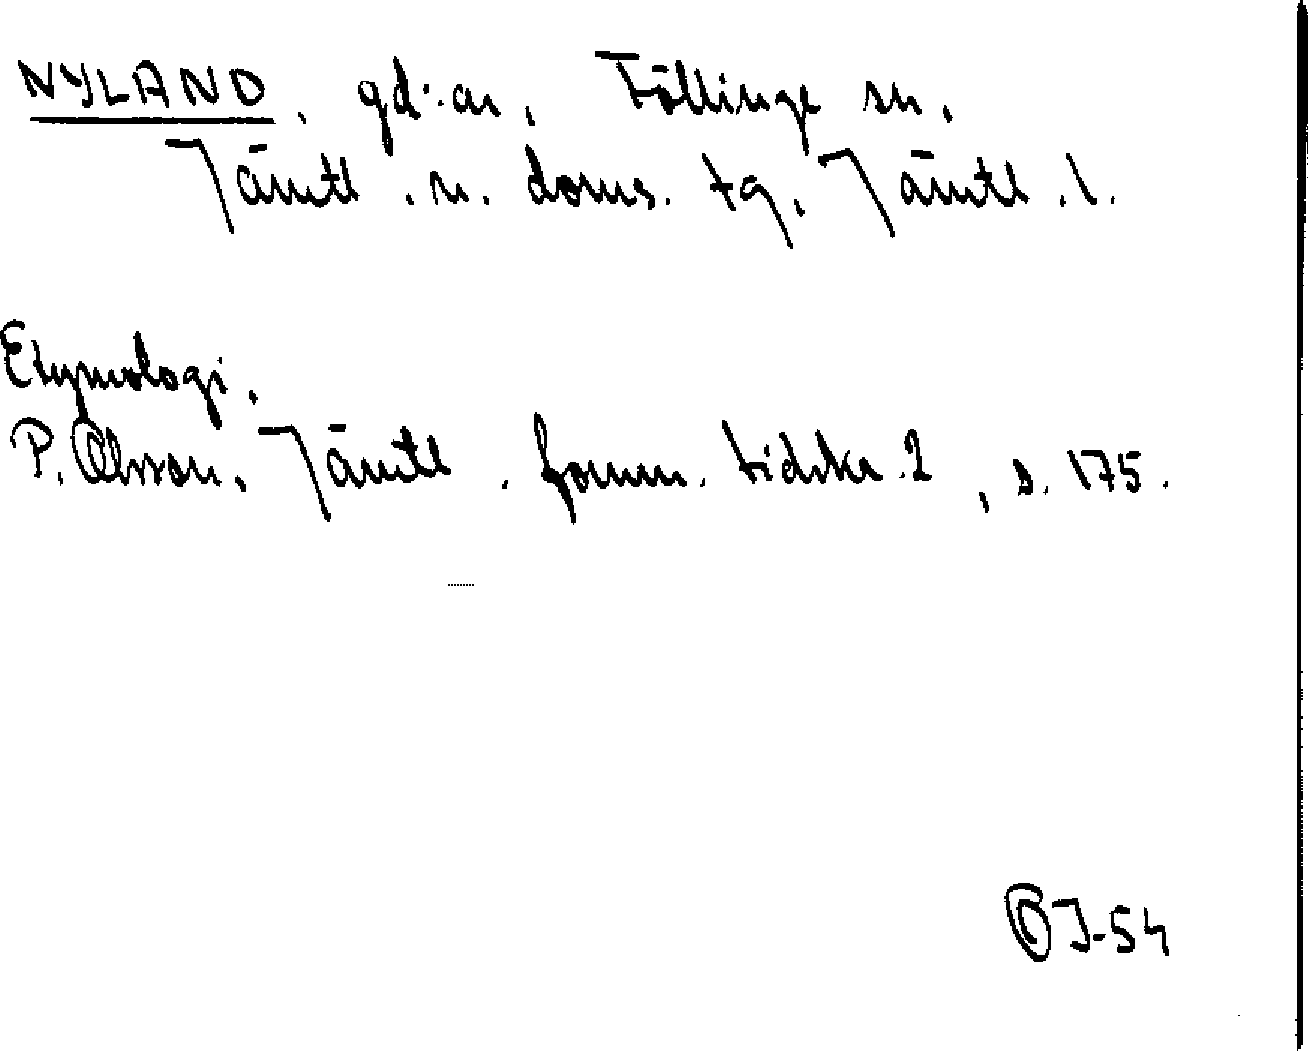 NYLAND, gd:ar, Föllinge sn,
Jämtl. n. doms. tg, Jämtl. l.
Etymologi.
P. Olsson, Jämtl. fornm. tidskr. 2, s. 175.
OJ-54